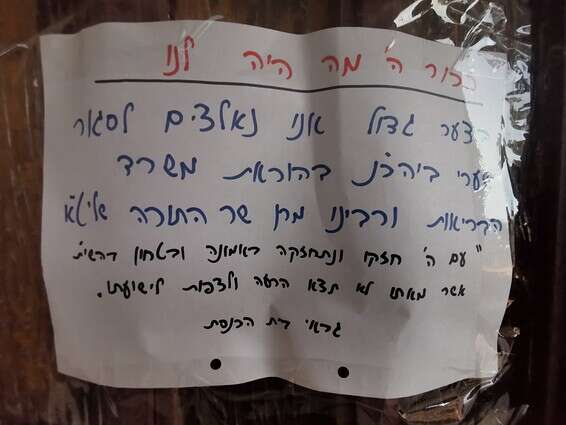 זכור ה' מה היה לנו
בצער גדול אנו נאלצים לסגור
שערי ביהכ"נ בהוראת משרד
הבריאות ורבינו מרן שר התורה שליט"א
"עם ה' חזקו ונתחזקה באמונה ובטחון בהשי"ת
אשר מאתו לא תצא הרעה ולצפות לישועתו.
גבאי בית הכנסת